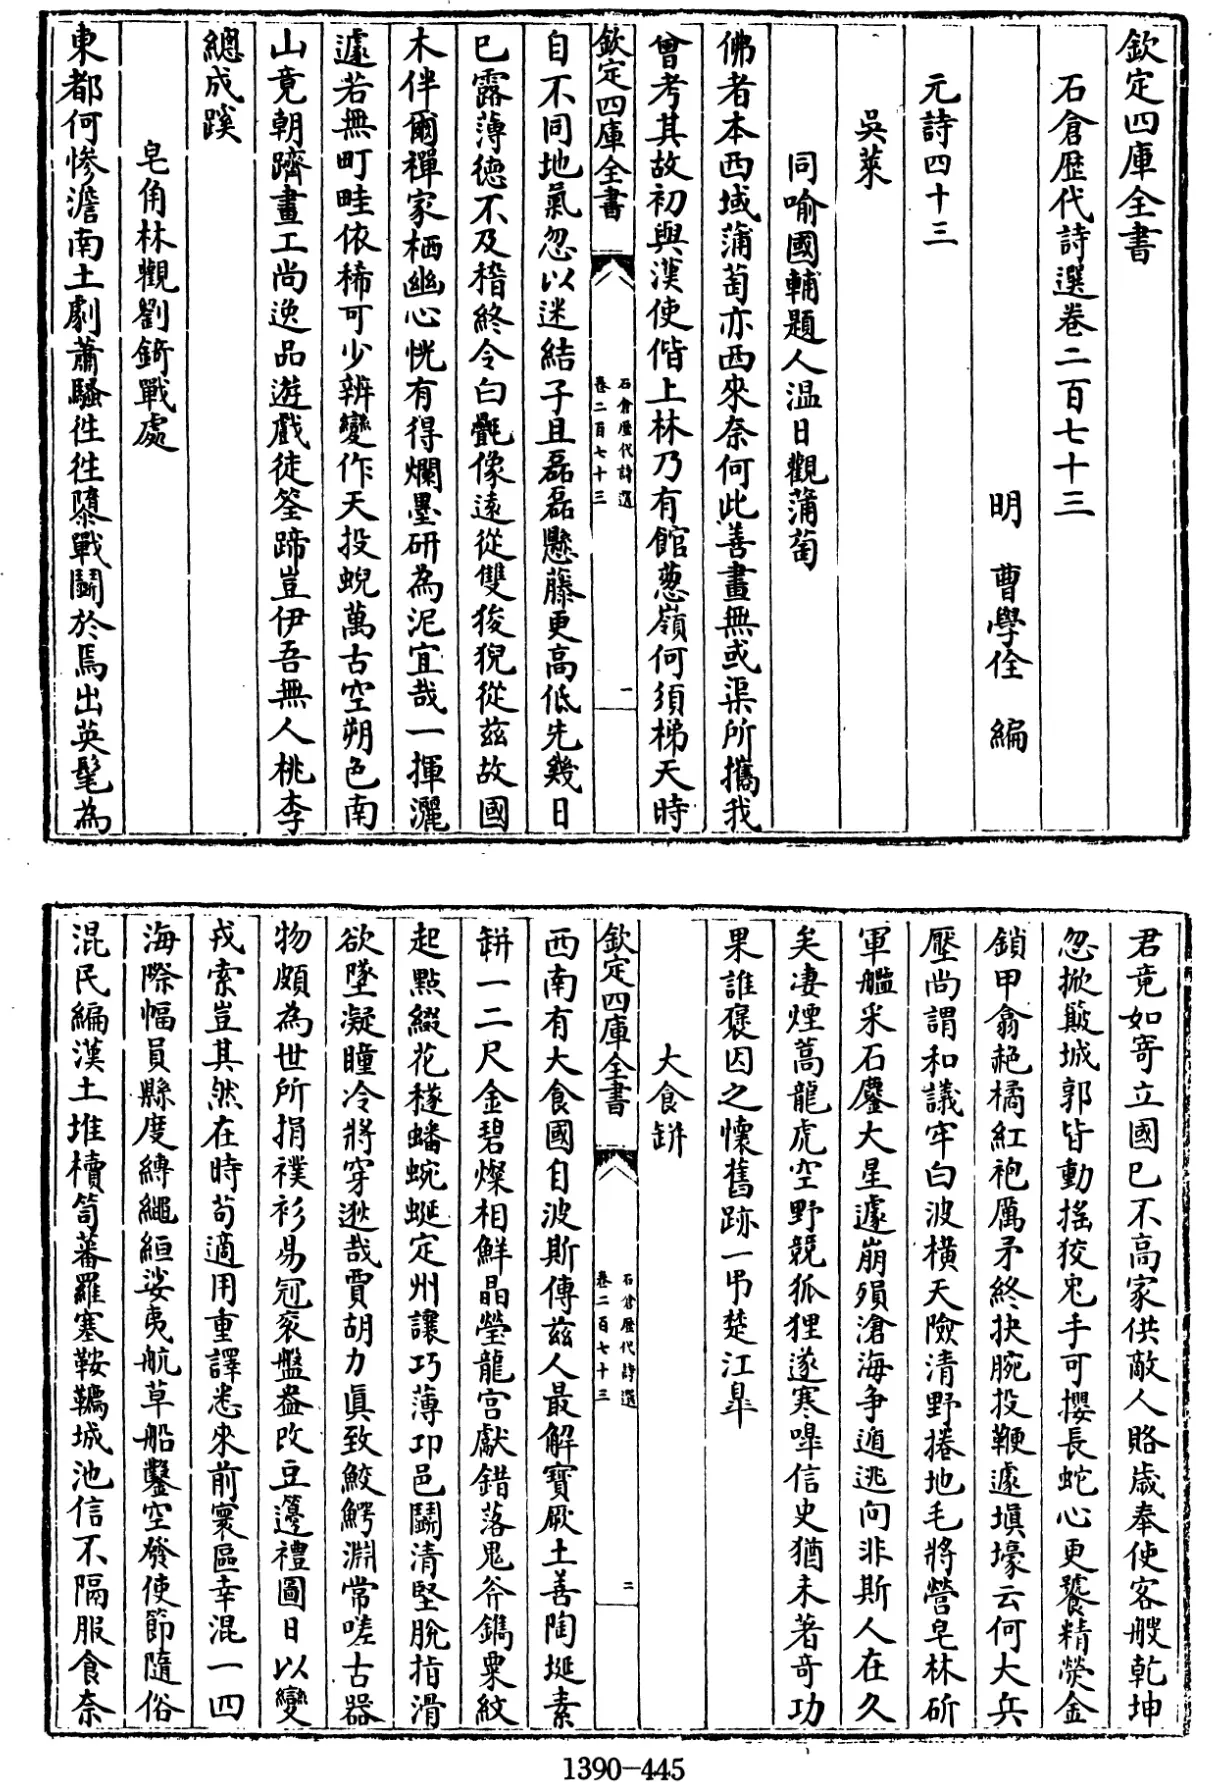 欽定四庫全書
石倉歷代詩選卷二百七十三
明 曹學佺 編
元詩四十三
吳萊
同喻國輔題人温日觀蒲萄
佛者本西域蒲萄亦西來奈何此善畫無或渠所攜我
曾考其故初與漢使偕上林乃有館葱嶺何須梯天時
欽定四庫全書
石倉歷代詩選
卷二百七十三
一
自不同地氣忽以迷結子且磊磊懸藤更高低先幾日
已露薄德不及稽終令白㲲像遠從雙狻猊從兹故國
木伴爾禪家栖幽心恍有得爛墨研為泥宜哉一揮灑
遽若無町畦依稀可少辨變作天投蜺萬古空朔色南
山竟朝隮畫工尚逸品遊戲徒筌蹄豈伊吾無人桃李
總成蹊
皂角林觀劉錡戰處
東都何慘澹南土劇蕭騷往往隳戰鬭於焉出英髦為
君竟如寄立國已不高家供敵人賂歳奉使客艘乾坤
忽掀簸城郭皆動揺狡兎手可攖長蛇心更饕精熒金
鎖甲翕赩橘紅袍厲矛終抉腕投鞭遽塡壕云何大兵
壓尚謂和議牢白波橫天險清野捲地毛將營皂林斫
軍艦采石鏖大星遽崩殞滄海爭遁逃向非斯人在久
矣凄煙蒿龍虎空野競狐狸遂寒嘷信史猶未著奇功
果誰褒因之懷舊跡一弔楚江臯
大食缾
欽定四庫全書
石倉歷代詩選
卷二百七十三
二
西南有大食國自波斯傳兹人最解寳厥土善陶埏素
缾一二尺金碧燦相鮮晶瑩龍宫獻錯落鬼斧鐫粟紋
起點綴花襚蟠蜿蜒定州讓巧薄卭邑鬭清堅脫指滑
欲墜凝瞳冷將穿逖哉賈胡力眞致鮫鰐淵常嗟古器
物頗為世所捐襆衫易冠衮盤盎改豆籩禮圖日以變
戎索豈其然在時苟適用重譯悉來前寰區幸混一四
海際幅員縣度縛繩絙娑夷航草船鑿空發使節隨俗
混民編漢土堆櫝笥蕃羅塞鞍韉城池信不隔服食奈
1390-445